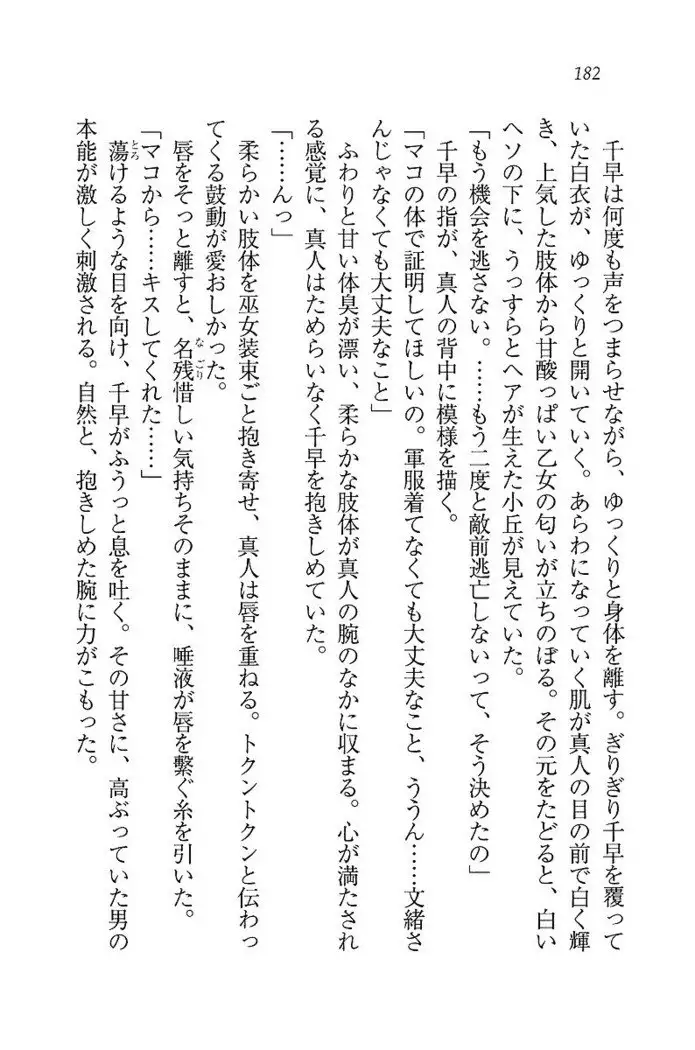 182
千早は何度も声をつまらせながら、ゆっくりと身体を離す。ぎりぎり千早を覆って
いた白衣が、ゆっくりと開いていく。あらわになっていく肌が真人の目の前で白く輝
き、上気した肢体から甘酸っぱい乙女の匂いが立ちのぼる。その元をたどると、白い
ヘソの下に、うっすらとヘアが生えた小丘が見えていた。
「もう機会を逃さない。……もう二度と敵前逃亡しないって、そう決めたの」
千早の指が、真人の背中に模様を描く。
「マコの体で証明してほしいの。軍服着てなくても大丈夫なこと、ううん……文緒さ
んじゃなくても大丈夫なこと」
ふわりと甘い体臭が漂い、柔らかな肢体が真人の腕のなかに収まる。心が満たされ
る感覚に、真人はためらいなく千早を抱きしめていた。
「……んっ」
柔らかい肢体を巫女装束ごと抱き寄せ、真人は唇を重ねる。トクントクンと伝わっ
てくる鼓動が愛おしかった。
唇をそっと離すと、名残惜しい気持ちそのままに、唾液が唇を繋ぐ糸を引いた。
なごり
「マコから……キスしてくれた……」
蕩けるような目を向け、千早がふうっと息を吐く。その甘さに、高ぶっていた男の
とろ
本能が激しく刺激される。自然と、抱きしめた腕に力がこもった。